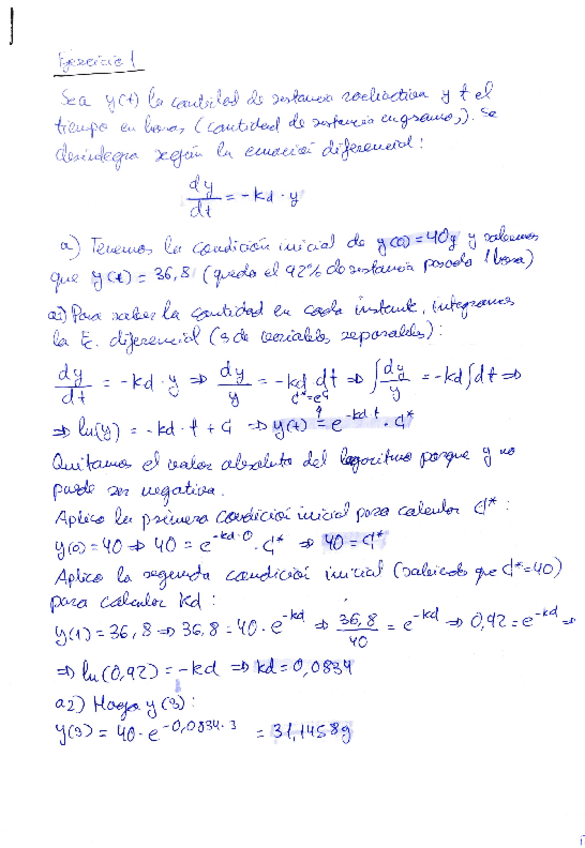 Ejercicio 1
Sea y(t) la cantidad de sustancia radiactiva y t el
tiempo en horas (cantidad de sustancia en gramos). Se
desintegra según la ecuación diferencial:
dy/dt = -kd · y
a) Tenemos la condición inicial de y(0)=40g y sabemos
que y(t) = 36,8 (queda el 92% de sustancia pasada 1 hora)
a1) Para saber la cantidad en cada instante, integramos
la Ec. diferencial (es de variables separables):
dy/dt = -kd · y ⇒ dy/y = -kd dt ⇒ ∫dy/y = -kd∫dt ⇒
C*=e^C
⇒ ln(y) = -kd · t + C ⇒ y(t) = e^-kd t · C*
Quitamos el valor absoluto del logaritmo porque y no
puede ser negativa.
Aplico la primera condición inicial para calcular C*:
y(0)=40 ⇒ 40 = e^-kd·0 · C* ⇒ 40 = C*
Aplico la segunda condición inicial (sabiendo que C*=40)
para calcular kd:
y(1)=36,8 ⇒ 36,8 = 40 · e^-kd ⇒ 36,8/40 = e^-kd ⇒ 0,92 = e^-kd ⇒
⇒ ln(0,92) = -kd ⇒ kd = 0,0834
a2) Hago y(3):
y(3) = 40 · e^-0,0834·3 = 31,1458g